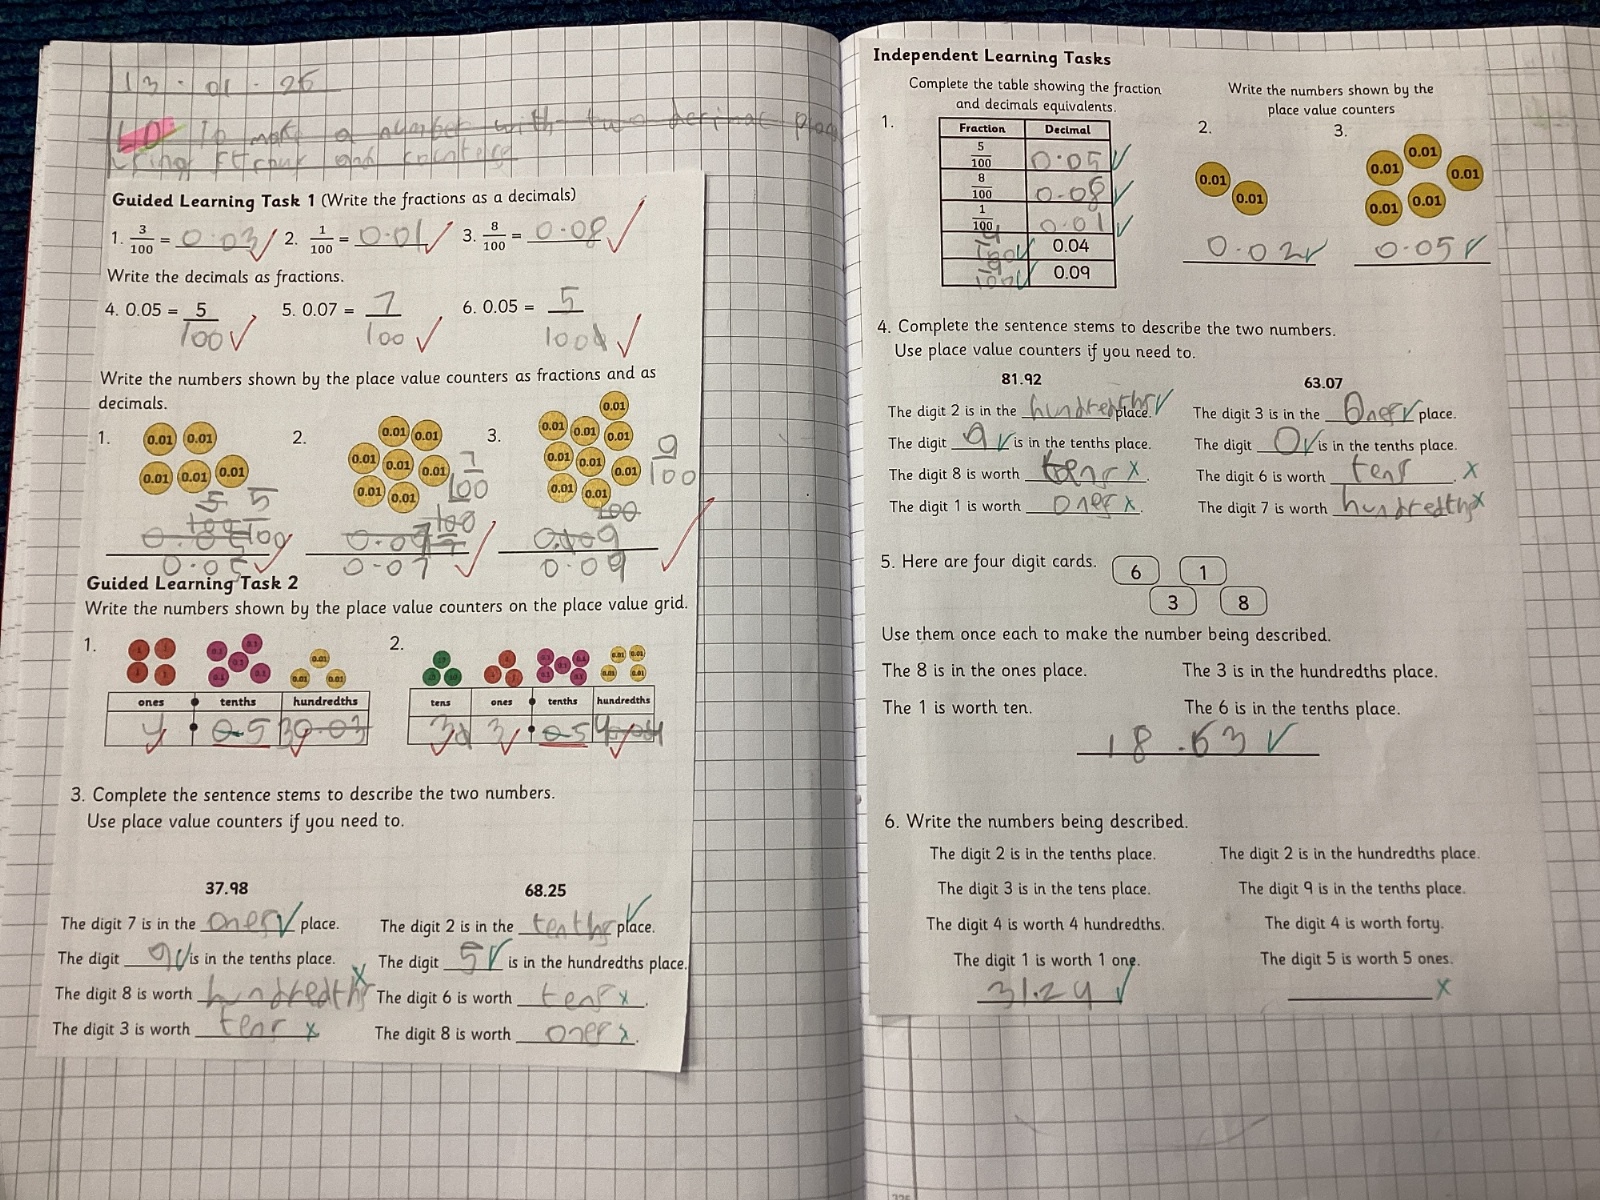 13 . 01 . 26
LO To make a number with two decimal places
using and counters
Guided Learning Task 1 (Write the fractions as a decimals)
1. 3/100 = 0.03 2. 1/100 = 0.01 3. 8/100 = 0.08
Write the decimals as fractions.
4. 0.05 = 5/100 5. 0.07 = 7/100 6. 0.05 = 5/100
Write the numbers shown by the place value counters as fractions and as
decimals.
1. 2. 3.
0.01 0.01 0.01 0.01 0.01
5/100
0.05
0.01 0.01 0.01 0.01 0.01 0.01 0.01
7/100
0.07
0.01 0.01 0.01 0.01 0.01 0.01 0.01 0.01 0.01
9/100
0.09
Guided Learning Task 2
Write the numbers shown by the place value counters on the place value grid.
1. 2.
ones tenths hundredths
4 5 3
tens ones tenths hundredths
3 3 5 4
3. Complete the sentence stems to describe the two numbers.
Use place value counters if you need to.
37.98 68.25
The digit 7 is in the ones place. The digit 2 is in the tenths place.
The digit 9 is in the tenths place. The digit 5 is in the hundredths place.
The digit 8 is worth hundredths The digit 6 is worth tens.
The digit 3 is worth tens The digit 8 is worth ones.
Independent Learning Tasks
Complete the table showing the fraction
and decimals equivalents.
1.
Fraction Decimal
5/100 0.05
8/100 0.08
1/100 0.01
4/100 0.04
9/100 0.09
Write the numbers shown by the
place value counters
2. 3.
0.01 0.01
0.02
0.01 0.01 0.01 0.01 0.01
0.05
4. Complete the sentence stems to describe the two numbers.
Use place value counters if you need to.
81.92 63.07
The digit 2 is in the hundredths place. The digit 3 is in the Ones place.
The digit 9 is in the tenths place. The digit 0 is in the tenths place.
The digit 8 is worth tens. The digit 6 is worth tens.
The digit 1 is worth ones. The digit 7 is worth hundredths
5. Here are four digit cards. 6 1
3 8
Use them once each to make the number being described.
The 8 is in the ones place. The 3 is in the hundredths place.
The 1 is worth ten. The 6 is in the tenths place.
18.63
6. Write the numbers being described.
The digit 2 is in the tenths place. The digit 2 is in the hundredths place.
The digit 3 is in the tens place. The digit 9 is in the tenths place.
The digit 4 is worth 4 hundredths. The digit 4 is worth forty.
The digit 1 is worth 1 one. The digit 5 is worth 5 ones.
31.24